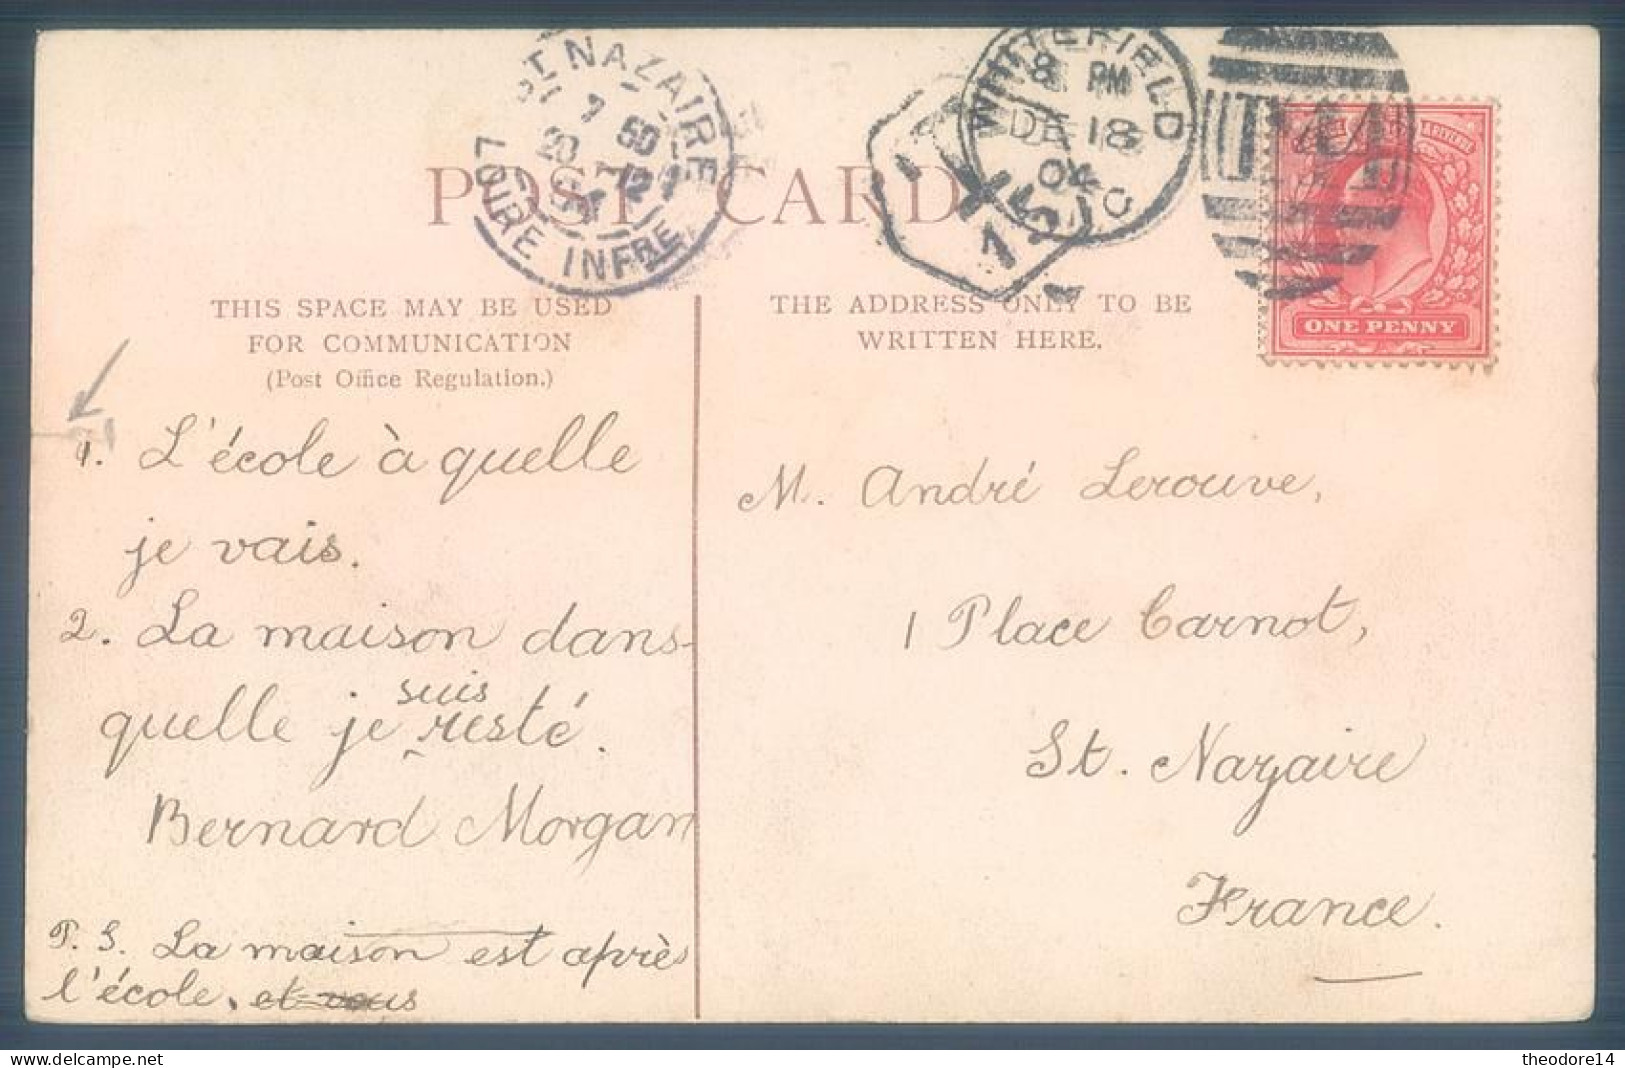 ST NAZAIRE
20 12
LOIRE INFRE
WHITEFIELD
8 PM
DE 18
04
POST CARD
THIS SPACE MAY BE USED
FOR COMMUNICATION
(Post Office Regulation.)
THE ADDRESS ONLY TO BE
WRITTEN HERE.
ONE PENNY
1. L'école à quelle
je vais.
2. La maison dans-
quelle je suis resté.
Bernard Morgan
P. S. La maison est après
l'école. et vous
M. André Lerouve,
1 Place Carnot,
St. Nazaire
France.
theodore14